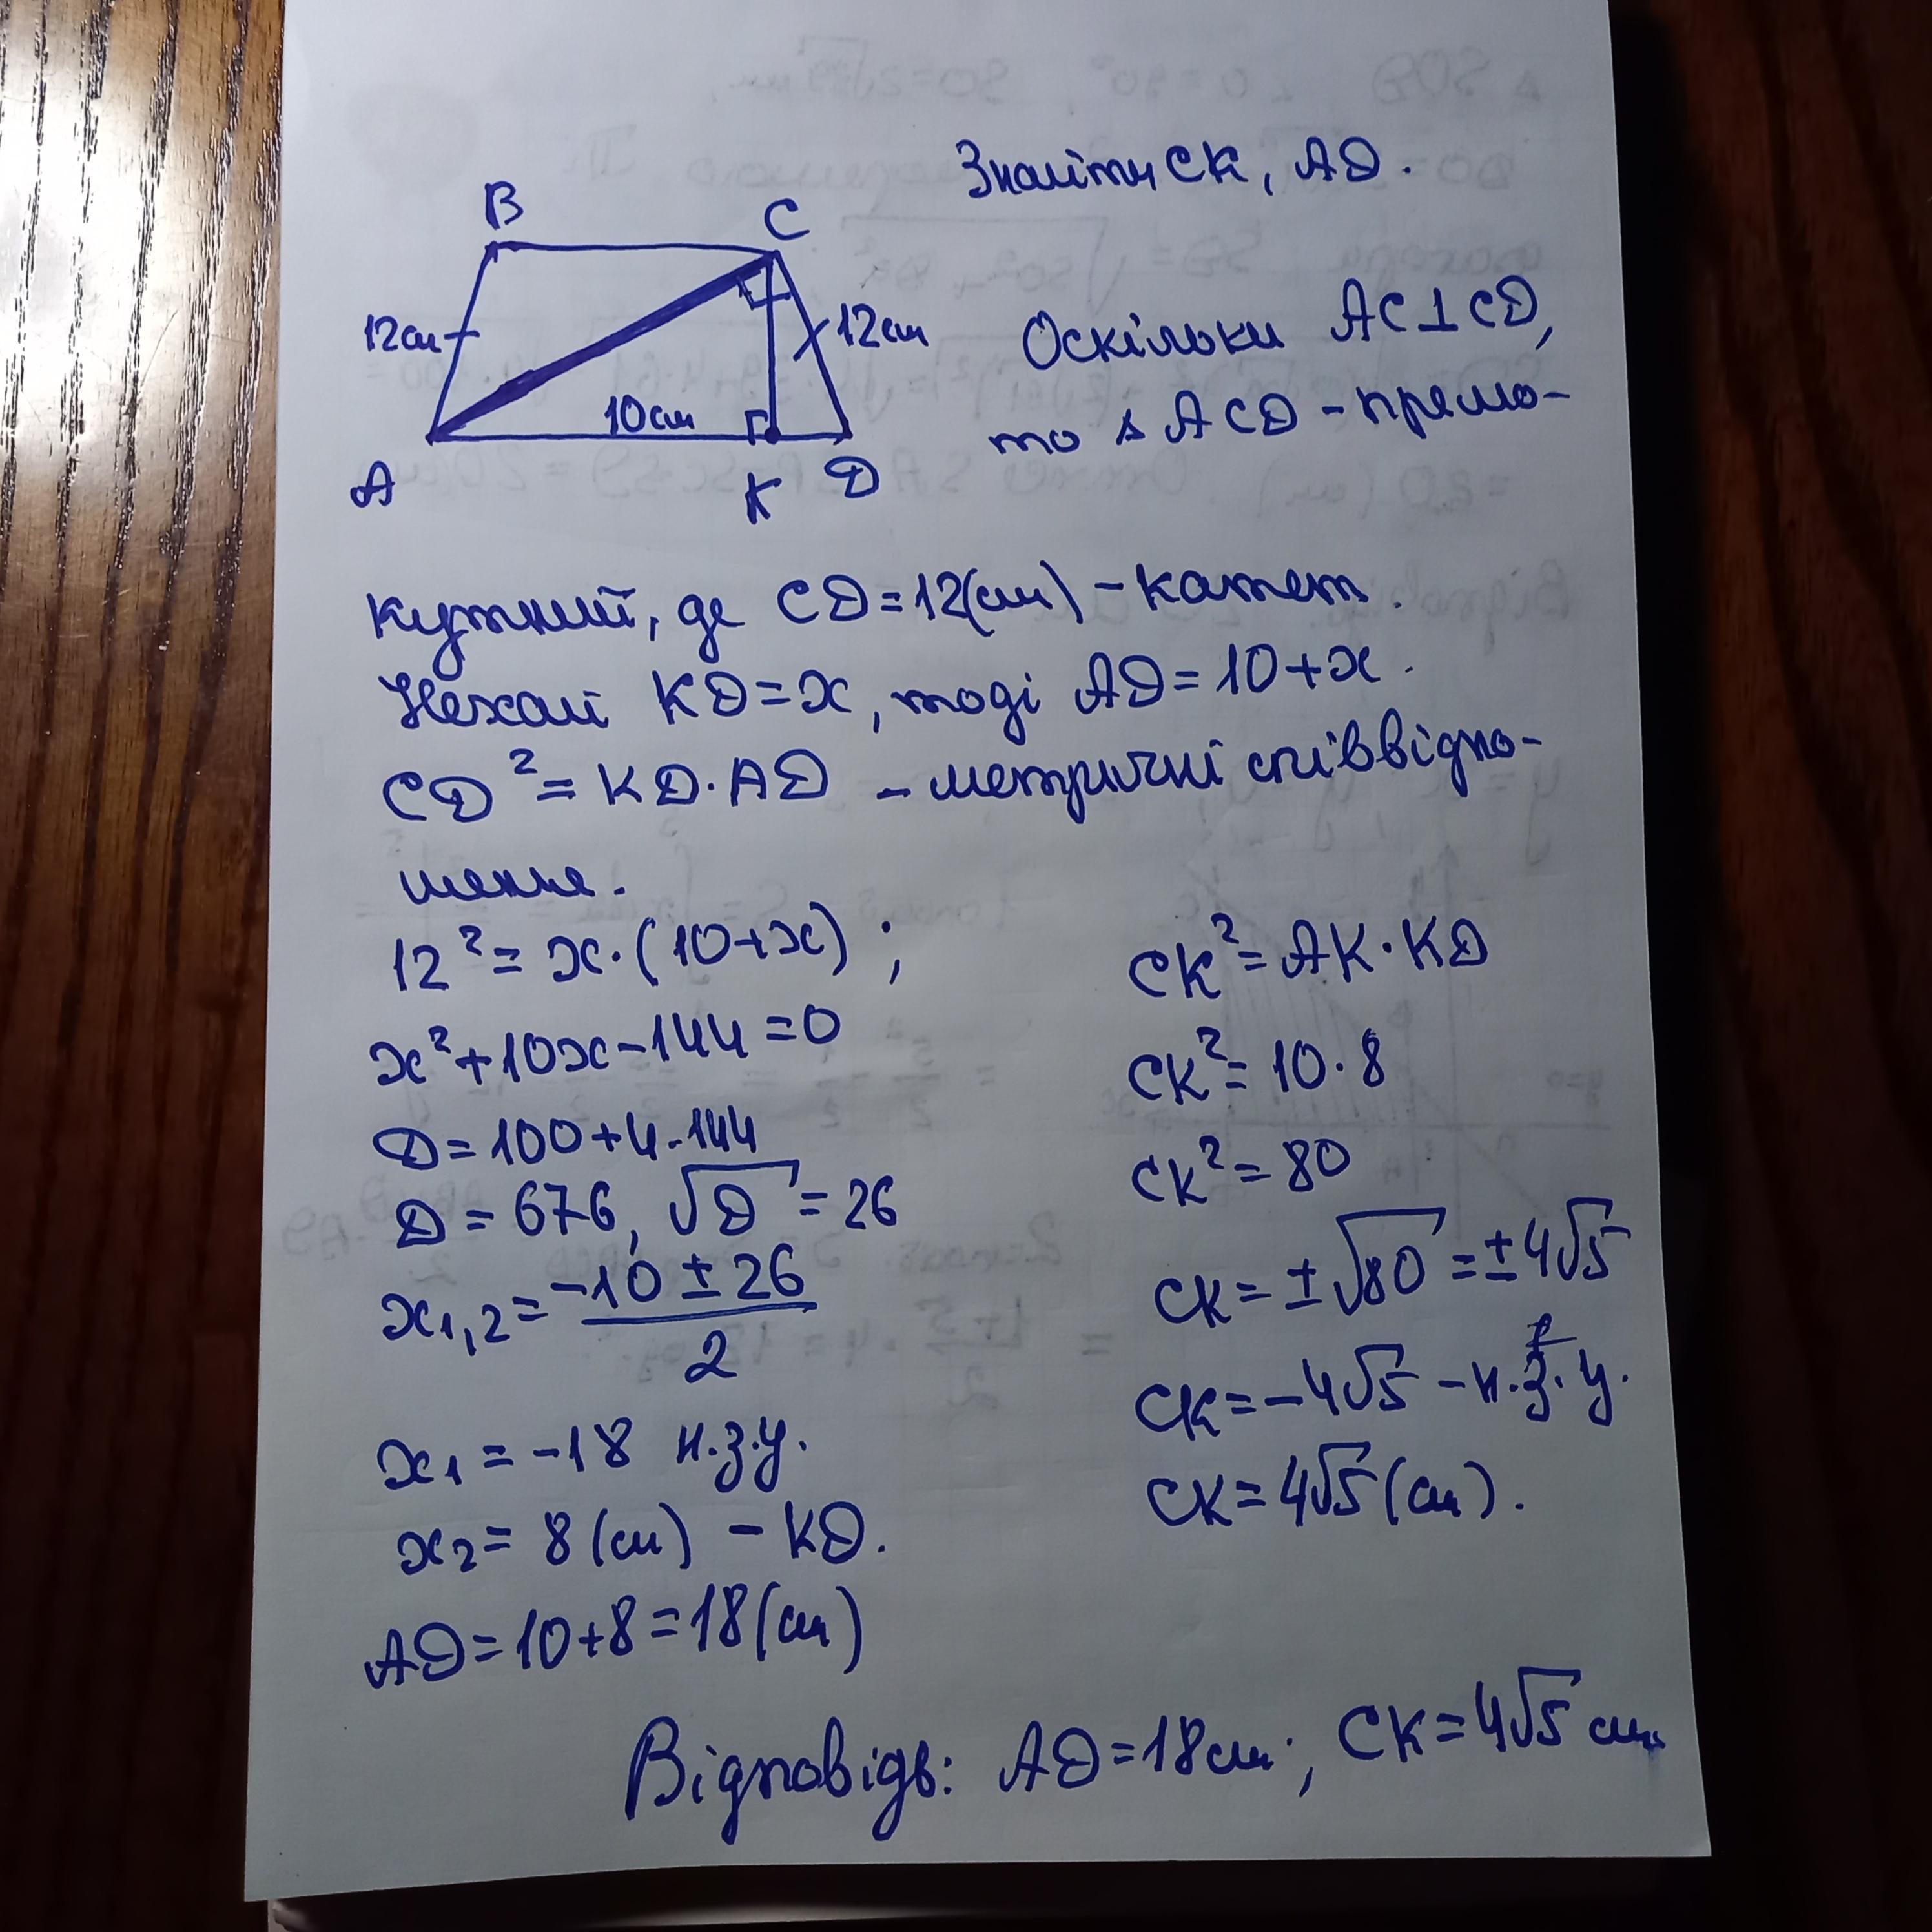 Знайти CK, AD.
B
C
12см
12см
10см
A
K
D
Оскільки AC⊥CD,
то △ ACD - прямо-
кутний, де CD=12(см) - катет.
Нехай KD=x, тоді AD=10+x.
CD²=KD·AD - метричні співвідно-
шення.
12²=x·(10+x);
x²+10x-144=0
D=100+4·144
D=676, √D=26
x₁,₂=(-10±26)/2
x₁=-18 н.з.у.
x₂=8(см) - KD.
AD=10+8=18(см)
CK²=AK·KD
CK²=10·8
CK²=80
CK=±√80=±4√5
CK=-4√5 - н.з.у.
CK=4√5(см).
Відповідь: AD=18см; CK=4√5 см